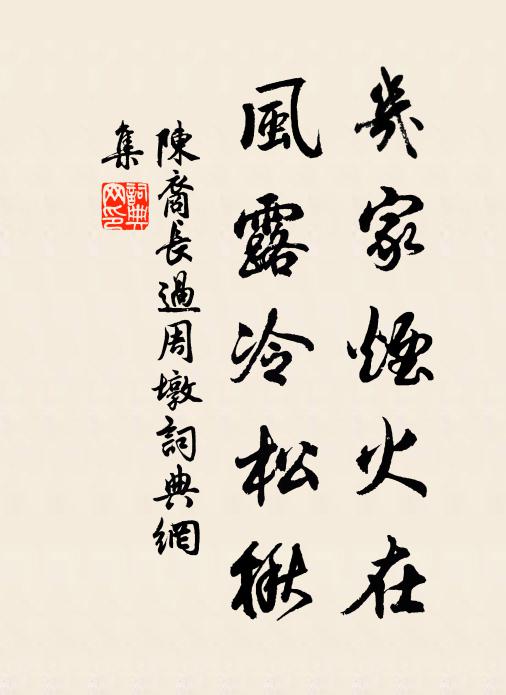 幾家煙火在
風露冷松楸
陳裔長過周墩詞典網
集
詞典
网印